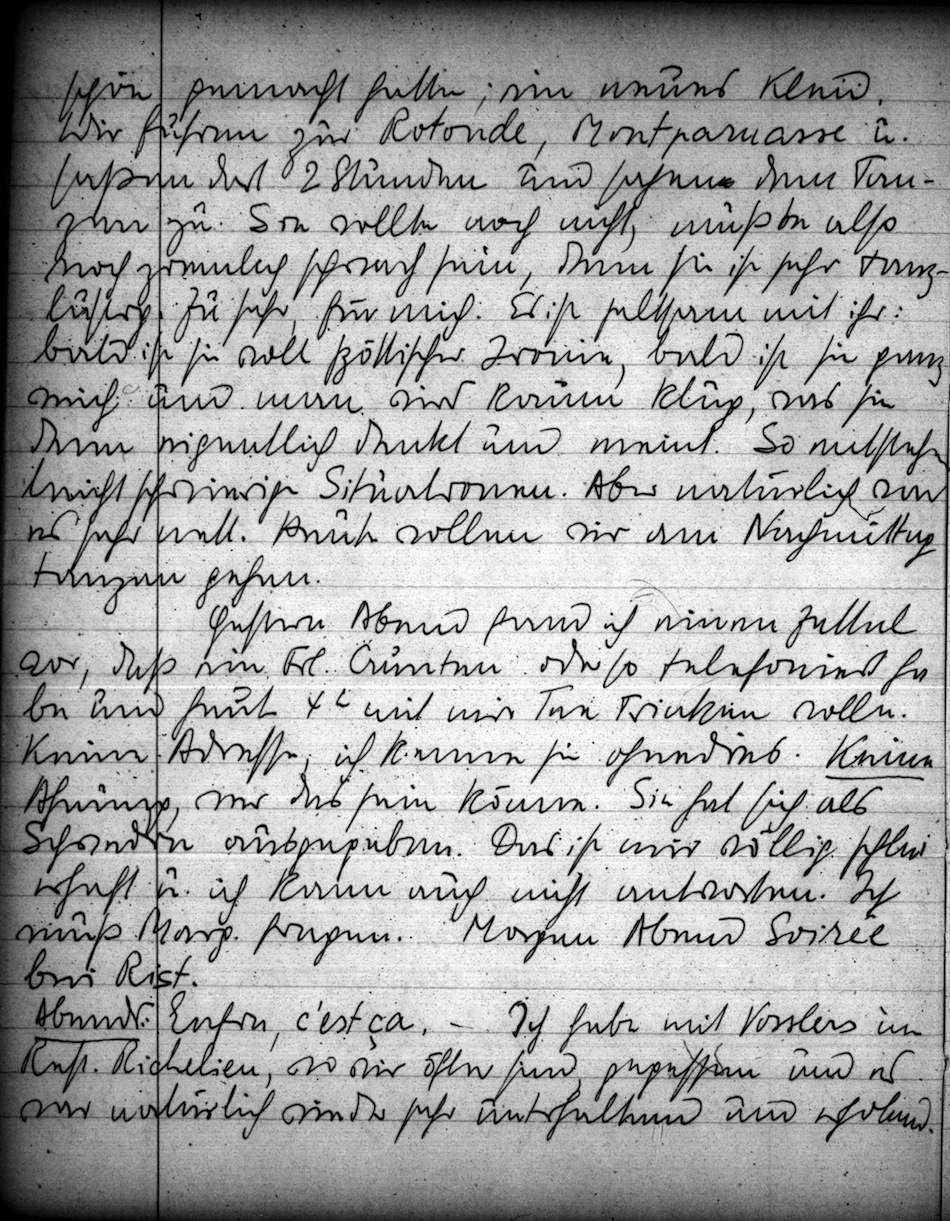 schön gemacht hatte; ein neues Kleid.
Wir fuhren zur Rotonde, Montparnasse u.
saßen dort 2 Stunden und sahen dem Tan-
zen zu. Sie wollte noch nicht, mußte also
noch ziemlich schwach sein, denn sie ist sehr tanz-
lustig. Zu sehr, für mich. Es ist seltsam mit ihr:
bald ist sie voll spöttischer Ironie, bald ist sie ganz
weich und man wird kaum klug, was sie
denn eigentlich denkt und meint. So entstehen
leicht schwierige Situationen. Aber natürlich war
es sehr nett. Heute wollen wir am Nachmittag
tanzen gehen.
Gestern Abend fand ich einen Zettel
vor, daß ein Frl. telefoniert ha
be und heute 4 mit mir Tee Trinken wolle.
Keine Adresse, ich kenne sie ohnedies. Keine
Ahnung, wer das sein könne. Sie hat sich als
Schwedin ausgegeben. Das ist mir völlig schlei
erhaft u. ich kann auch nicht antworten. Ich
muß Marg. fragen. Morgen Abend Soirée
bei Rist.
Abends. Enfin, c'est ça. – Ich habe mit Vosslers im
Rest. Richelieu, wo wir öfter sind, gegessen und es
war natürlich wieder sehr unterhaltend und erholend.